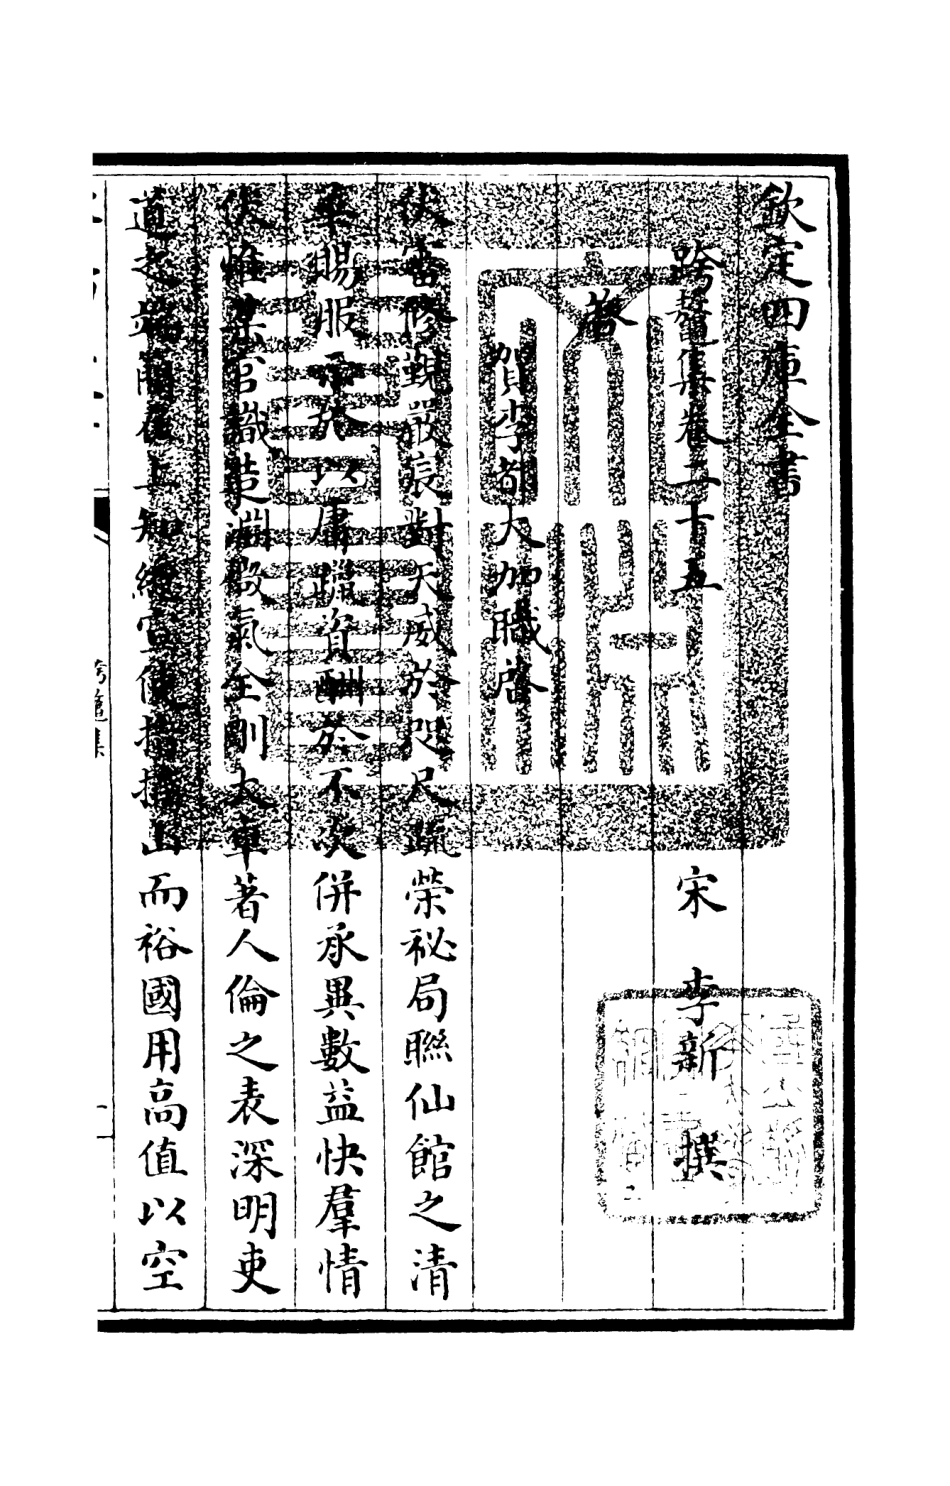 欽定四庫全書
跨鼇集卷二十五 宋 李新 撰
啓
賀李都大加職啓
伏審修覲嚴宸對天威於咫尺疏榮祕局聯仙館之清
華賜服以庸資酬於不次併承異數益快羣情
伏惟某官識造淵微氣全剛大卓著人倫之表深明吏
道之端簡在上知總宣使指摘山而裕國用高值以空
跨鼇集